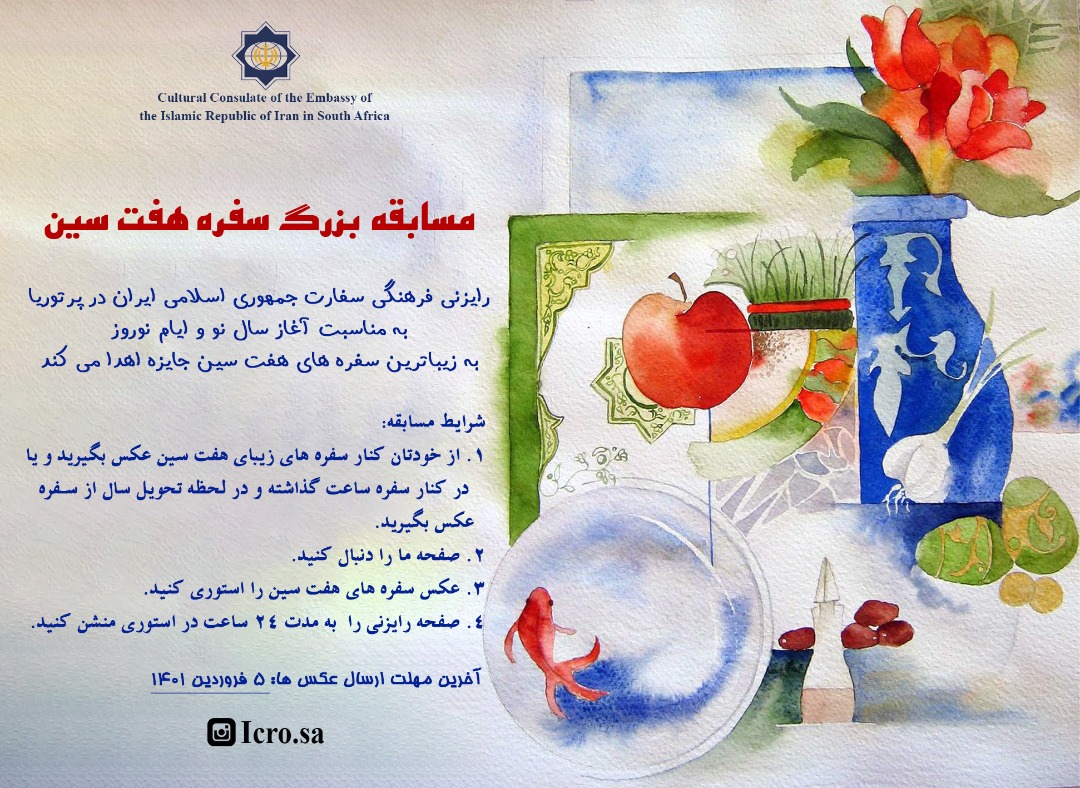 Cultural Consulate of the Embassy of
the Islamic Republic of Iran in South Africa
مسابقه بزرگ سفره هفت سین
رایزنی فرهنگی سفارت جمهوری اسلامی ایران در پرتوریا
به مناسبت آغاز سال نو و ایام نوروز
به زیباترین سفره های هفت سین جایزه اهدا می کند
شرایط مسابقه:
۱. از خودتان کنار سفره های زیبای هفت سین عکس بگیرید و یا
در کنار سفره ساعت گذاشته و در لحظه تحویل سال از سفره
عکس بگیرید.
۲. صفحه ما را دنبال کنید.
۳. عکس سفره های هفت سین را استوری کنید.
٤. صفحه رایزنی را به مدت ۲٤ ساعت در استوری منشن کنید.
آخرین مهلت ارسال عکس ها: ۵ فروردین ۱۴۰۱
Icro.sa